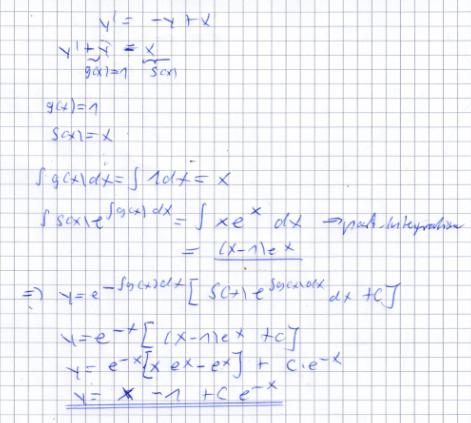 y' = -y + x
y' + y = x
g(x)=1 s(x)
g(x)=1
s(x)=x
∫ g(x) dx = ∫ 1 dx = x
∫ s(x) e^{∫g(x)dx} = ∫ x e^x dx → part. Integration
= (x-1) e^x
=> y = e^{-∫g(x)dx} [ ∫ s(x) e^{∫g(x)dx} dx + C ]
y = e^{-x} [ (x-1) e^x + C ]
y = e^{-x} [x e^x - e^x] + C · e^{-x}
y = x - 1 + C e^{-x}